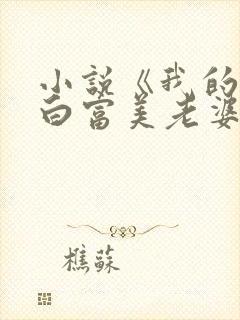 小说《我的
白富美老婆
樵蘇